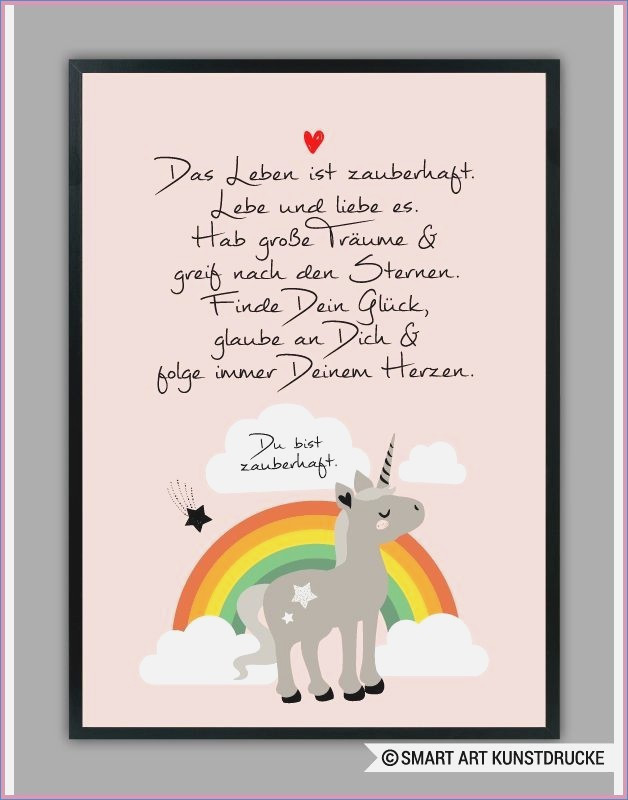 Das Leben ist zauberhaft.
Lebe und liebe es.
Hab große Träume &
greif nach den Sternen.
Finde Dein Glück,
glaube an Dich &
folge immer Deinem Herzen.
Du bist
zauberhaft.
©SMART ART KUNSTDRUCKE